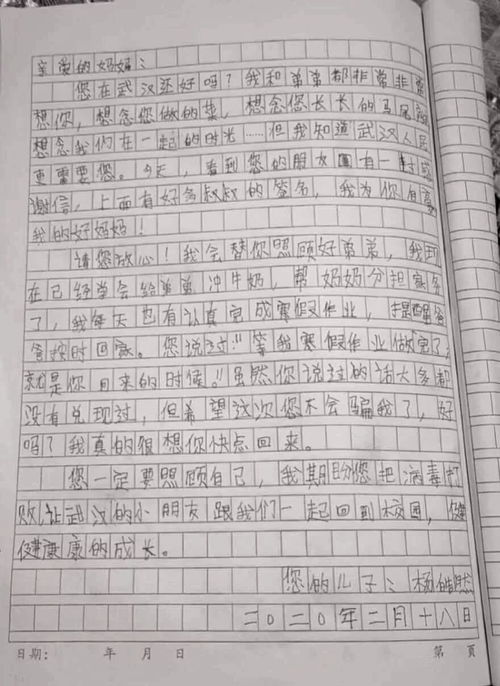 亲爱的妈妈:
您在武汉还好吗?我和弟弟都非常非常
想你,想念您做的菜,想念您长长的马尾
想念我们在一起的时光……但我知道武汉人民
更需要您。今天,看到您的朋友圈有一封感
谢信,上面有好多叔叔的签名,我为你自豪
我的好妈妈!
请您放心!我会替你照顾好弟弟,我现
在已经学会给弟弟冲牛奶,帮奶奶分担家务
了,我每天也有认真完成寒假作业,提醒爸
爸按时回家。您说过"等我寒假作业做完了,
就是你回来的时候。"虽然你说过的话大多都
没有兑现过,但希望这次您不会骗我了,好
吗?我真的很想你快点回来。
您一定要照顾自己,我期盼您把病毒打
败让武汉的小朋友跟我们一起回到校园,健
健康康的成长。
您的儿子:杨皓然
二〇二〇年二月十八日
日期: 年 月 日 第 页